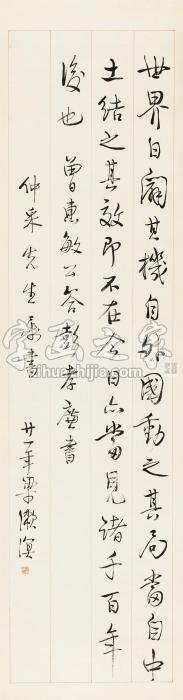 世界日闢其機自外國動之其局當自中
土結之其效即不在今日亦當見諸千百年
後也 曾惠敏公答彭孝廉書
仲來先生屬書 廿一年梁漱溟
字画之家
zihuazhijia.com